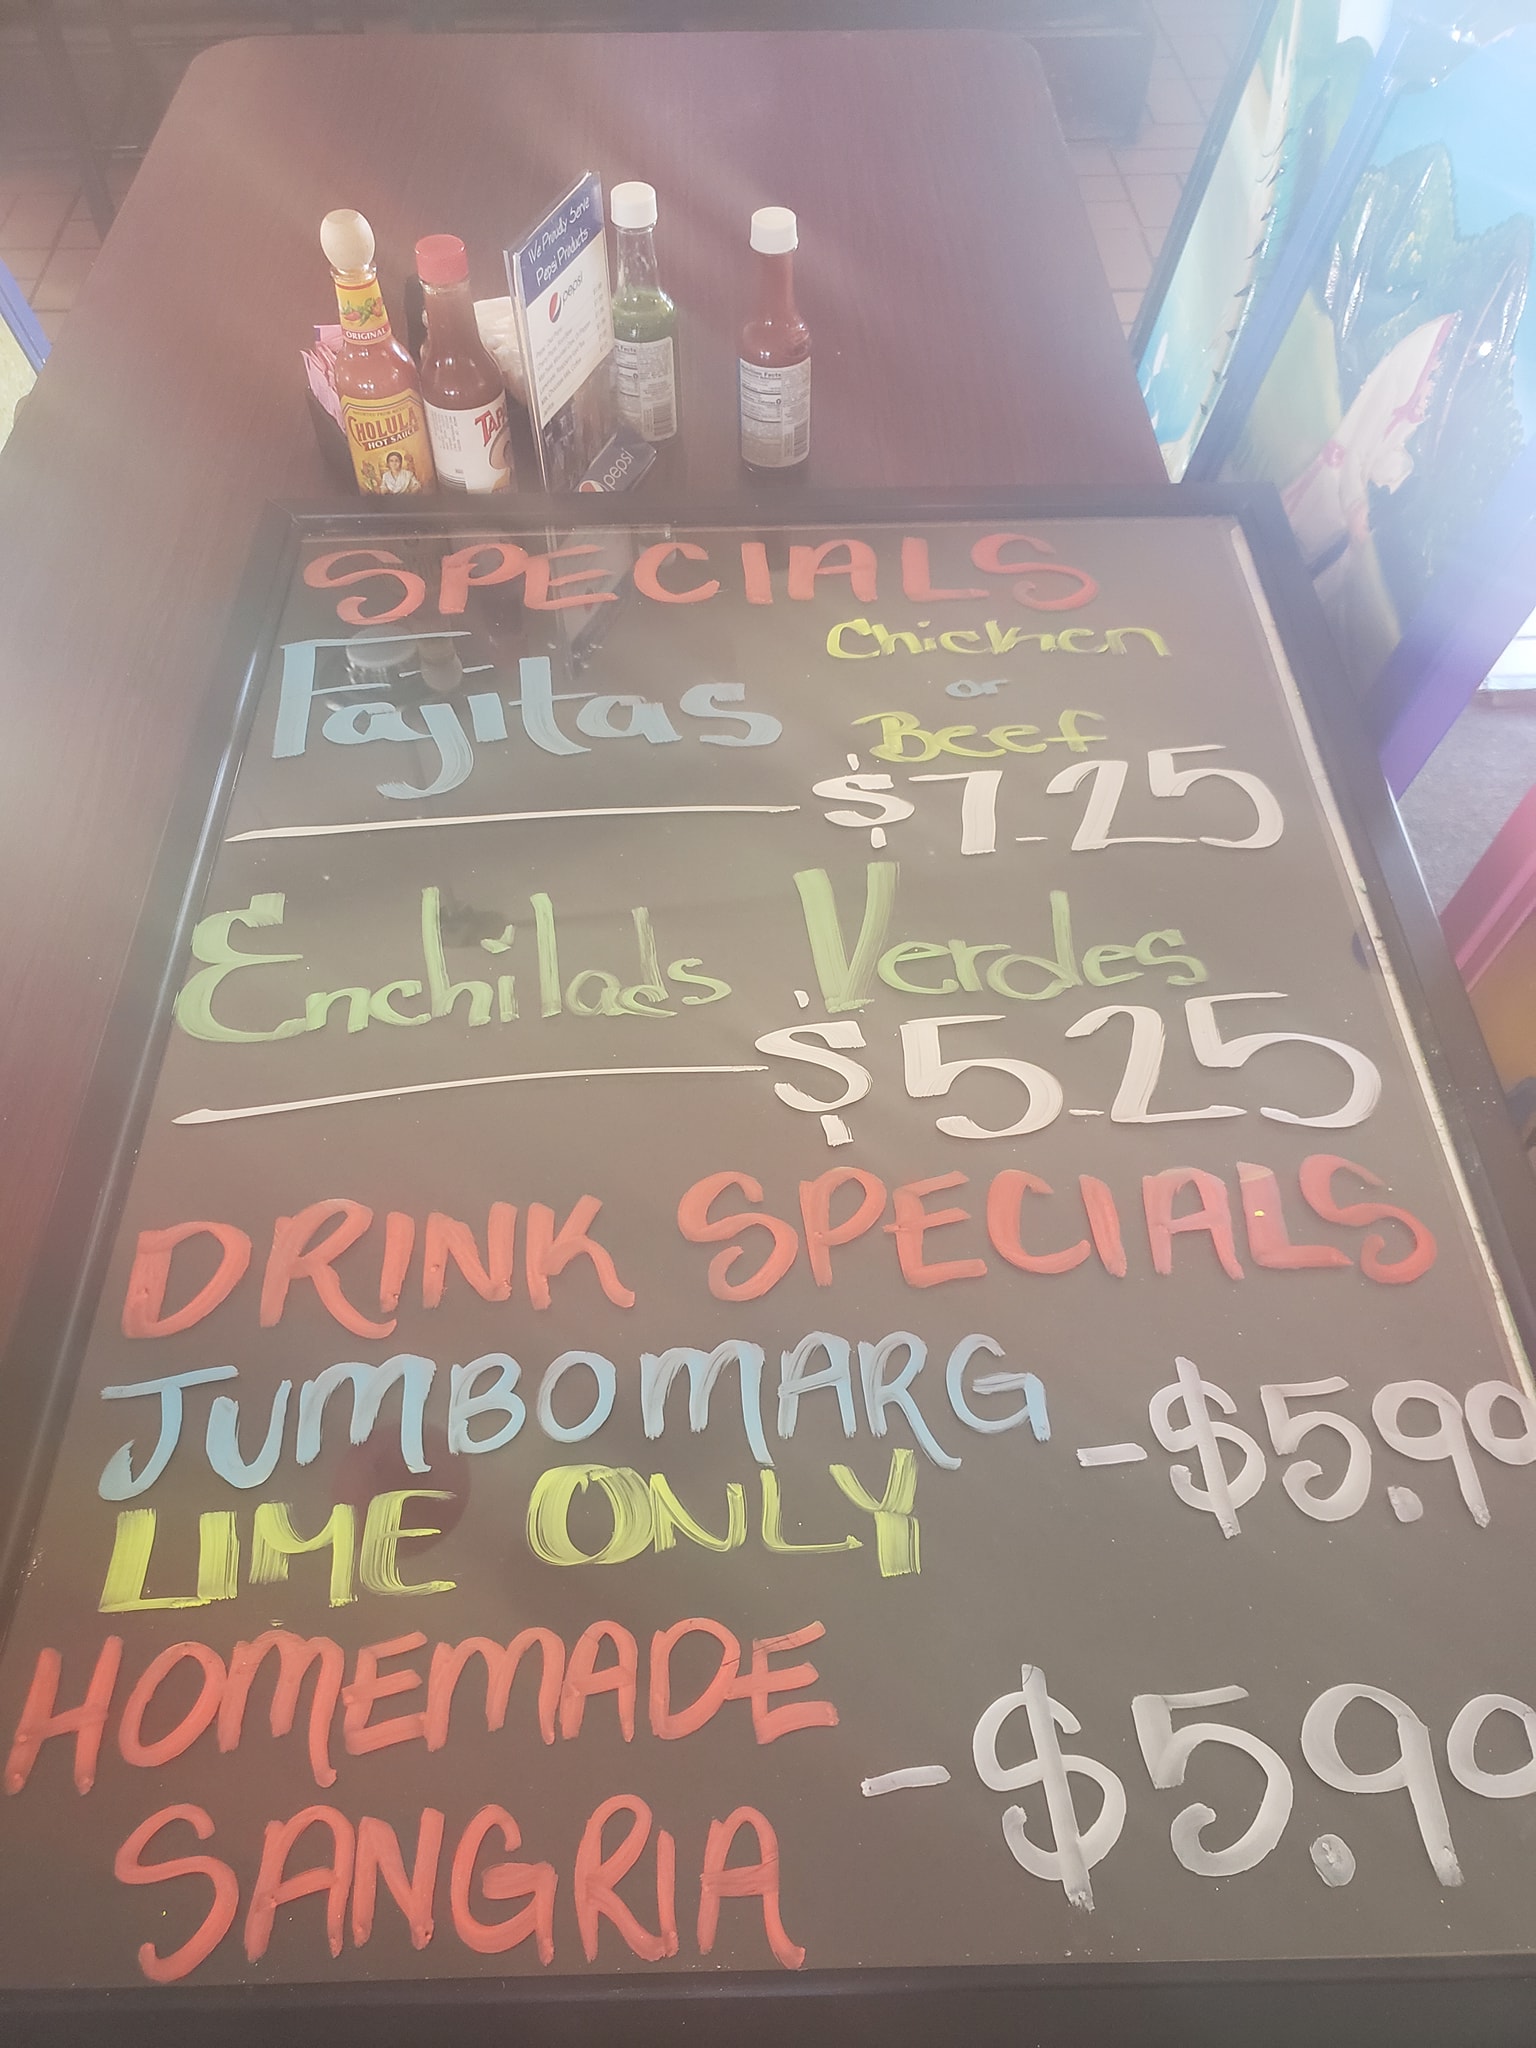 We Proudly Serve
Pepsi Products
pepsi
ORIGINAL
CHOLULA
HOT SAUCE
pepsi
SPECIALS
Fajitas Chicken
or
Beef
$7.25
Enchilads Verdes
$5.25
DRINK SPECIALS
JUMBO MARG -$5.99
LIME ONLY
HOMEMADE
SANGRIA -$5.99